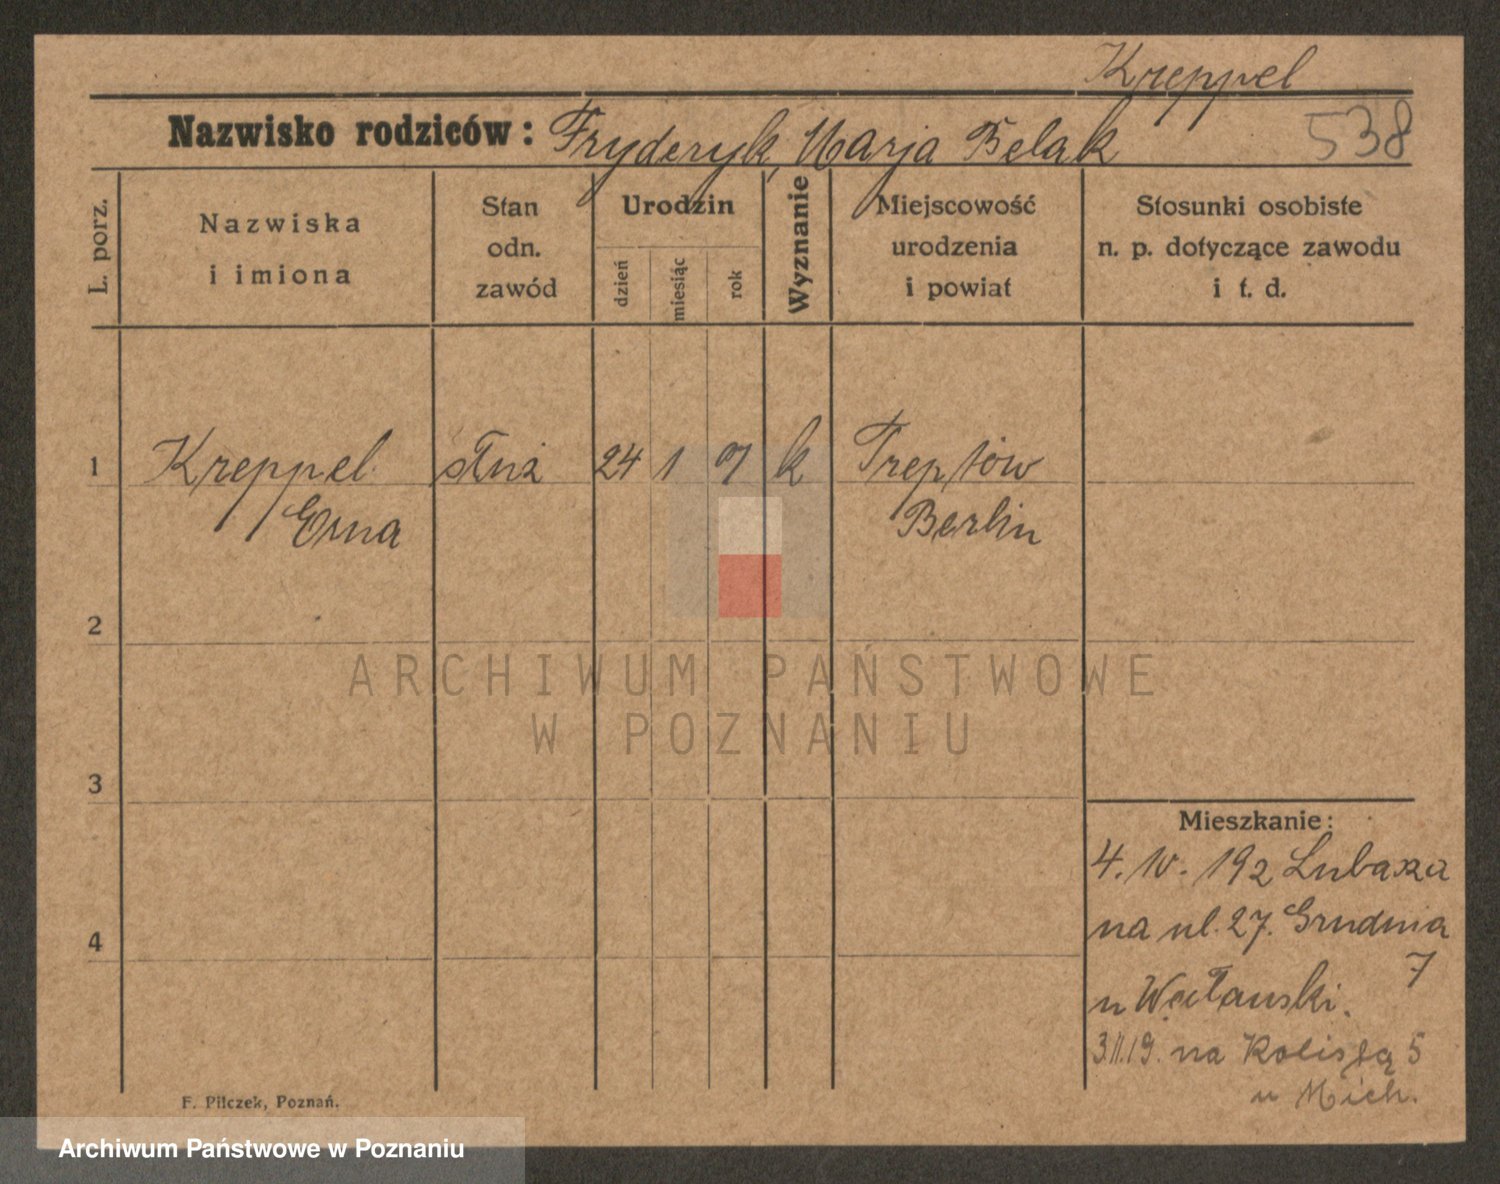 Kreppel
Nazwisko rodziców: Fryderyk, Marja Belak 538
L. porz.
Nazwiska i imiona
Stan odn. zawód
Urodzin
dzień
miesiąc
rok
Wyznanie
Miejscowość urodzenia i powiat
Stosunki osobiste n. p. dotyczące zawodu i t. d.
1 Kreppel służ 24 1 07 k Treptow
Erna Berlin
2
3
4
Mieszkanie:
4. IV. 192 Lubasza
na ul. 27. Grudnia
7
u Wactauski.
3.II.19. na 5
u Mich.
F. Pilczek, Poznań.
ARCHIWUM PAŃSTWOWE
W POZNANIU
Archiwum Państwowe w Poznaniu